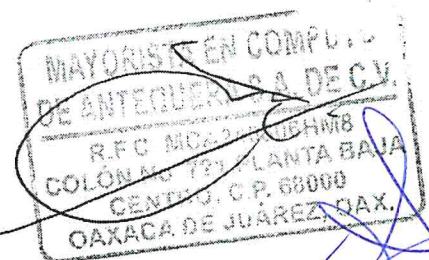 MAYORISTA EN COMPU
DE ANTEQUERA S.A. DE C.V.
R.F.C.
COLÓN No PLANTA BAJA
CENTRO, C.P. 68000
OAXACA DE JUAREZ, OAX.